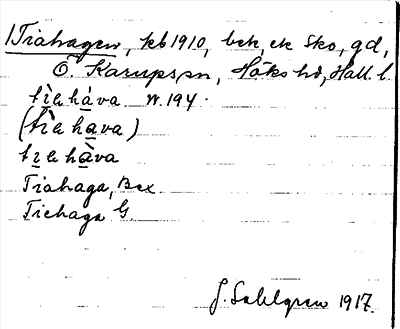 1 Tiahagen, kb 1910, bek, ek sko, gd,
Ö. Karups sn, Höks hd, Hall. l.
tìahȧva W. 194.
(tìahava)
tiahàva
Tiahaga, Bex.
Tiehaga G.
J. Sahlgren 1917.